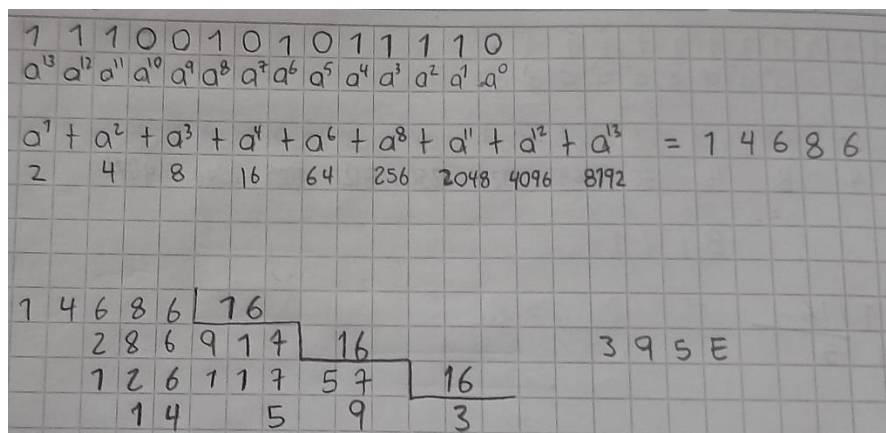 1 1 1 0 0 1 0 1 0 1 1 1 1 0
a¹³ a¹² a¹¹ a¹⁰ a⁹ a⁸ a⁷ a⁶ a⁵ a⁴ a³ a² a¹ a⁰
a¹ + a² + a³ + a⁴ + a⁶ + a⁸ + a¹¹ + a¹² + a¹³ = 1 4 6 8 6
2 4 8 16 64 256 2048 4096 8192
1 4 6 8 6 16
2 8 6 9 1 7 16 3 9 5 E
1 2 6 1 1 7 5 7 16
1 4 5 9 3